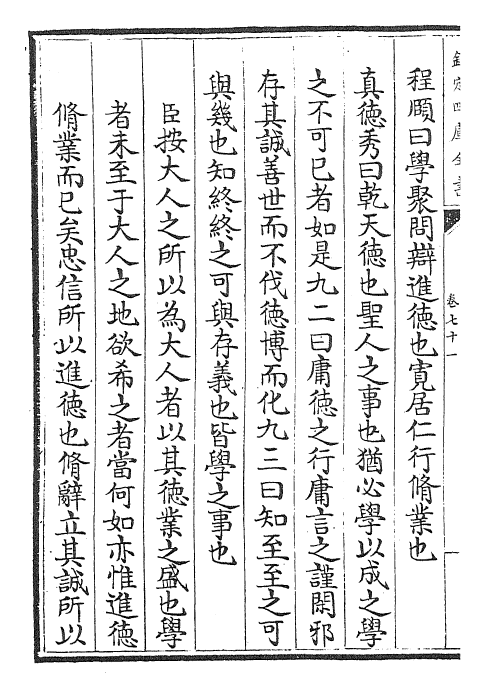 欽定四庫全書
卷七十一
程頤曰學聚問辯進徳也寛居仁行脩業也
真徳秀曰乾天徳也聖人之事也猶必學以成之學
之不可已者如是九二曰庸徳之行庸言之謹閑邪
存其誠善世而不伐徳博而化九三曰知至至之可
與幾也知終終之可與存義也皆學之事也
臣按大人之所以為大人者以其徳業之盛也學
者未至于大人之地欲希之者當何如亦惟進徳
脩業而已矣忠信所以進徳也脩辭立其誠所以